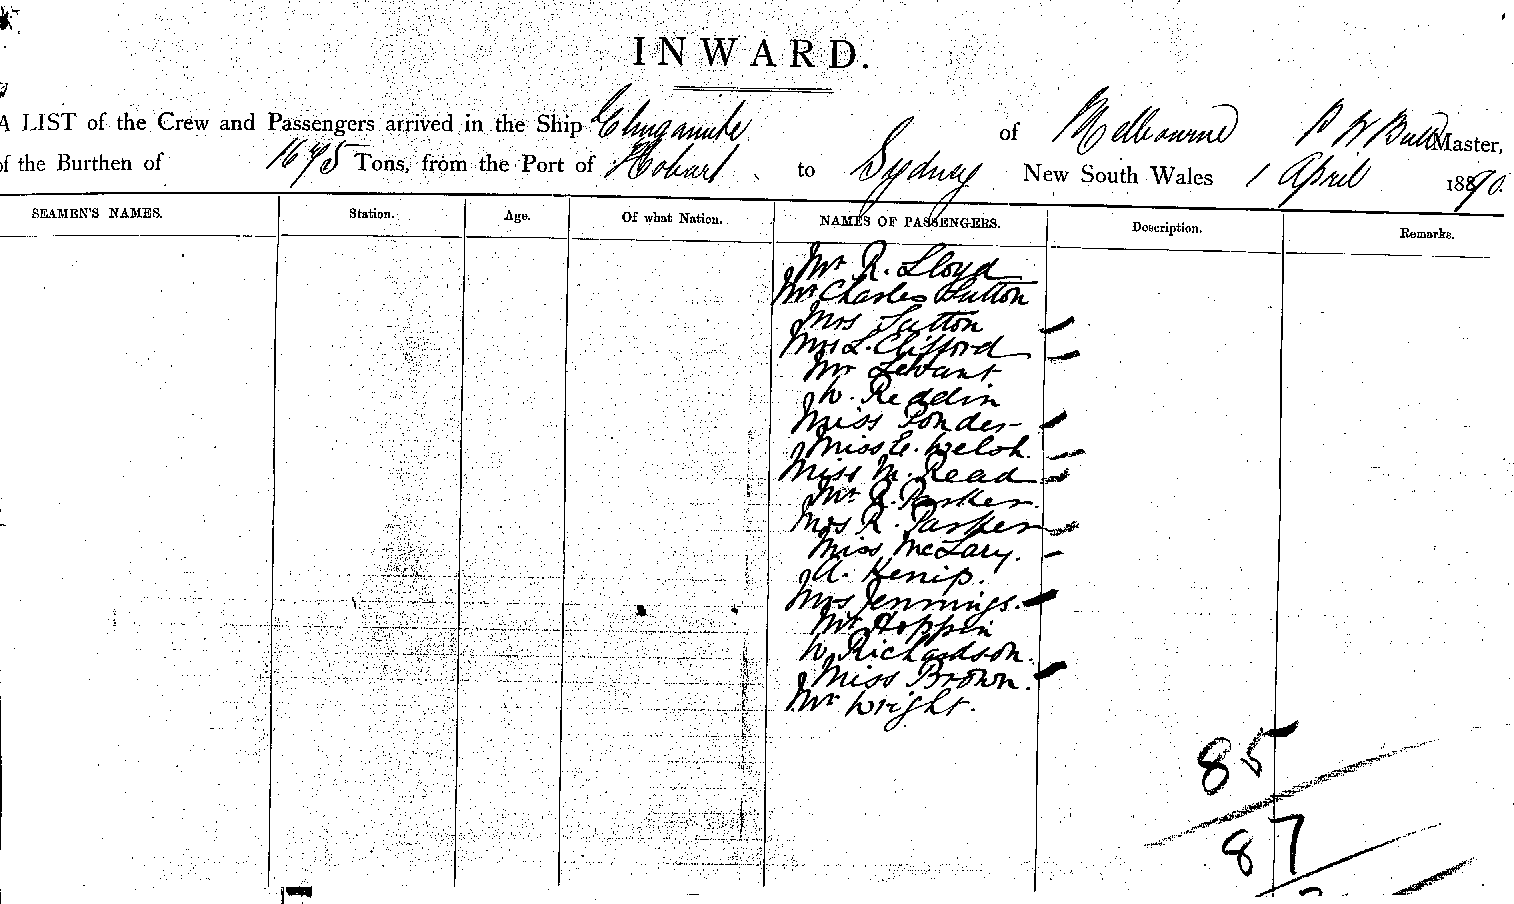 INWARD.
A LIST of the Crew and Passengers arrived in the Ship Elingamite of Melbourne P W Bull Master,
of the Burthen of 1675 Tons, from the Port of Hobart to Sydney New South Wales 1 April 1890.
SEAMEN'S NAMES. Station. Age. Of what Nation. NAMES OF PASSENGERS. Description. Remarks.
Mr R. Lloyd
Mr Charles Sutton
Mrs Sutton
Mrs L. Clifford
Mr Levant
W. Reddin
Miss Ponder
Miss E. Welsh.
Miss M. Read
Mr R. Parker.
Mrs R. Parker
Miss McLary.
A. Kenip.
Mrs Jennings.
Mr Hoppin
W Richardson.
Miss Brown.
Mr Wright.
85
87